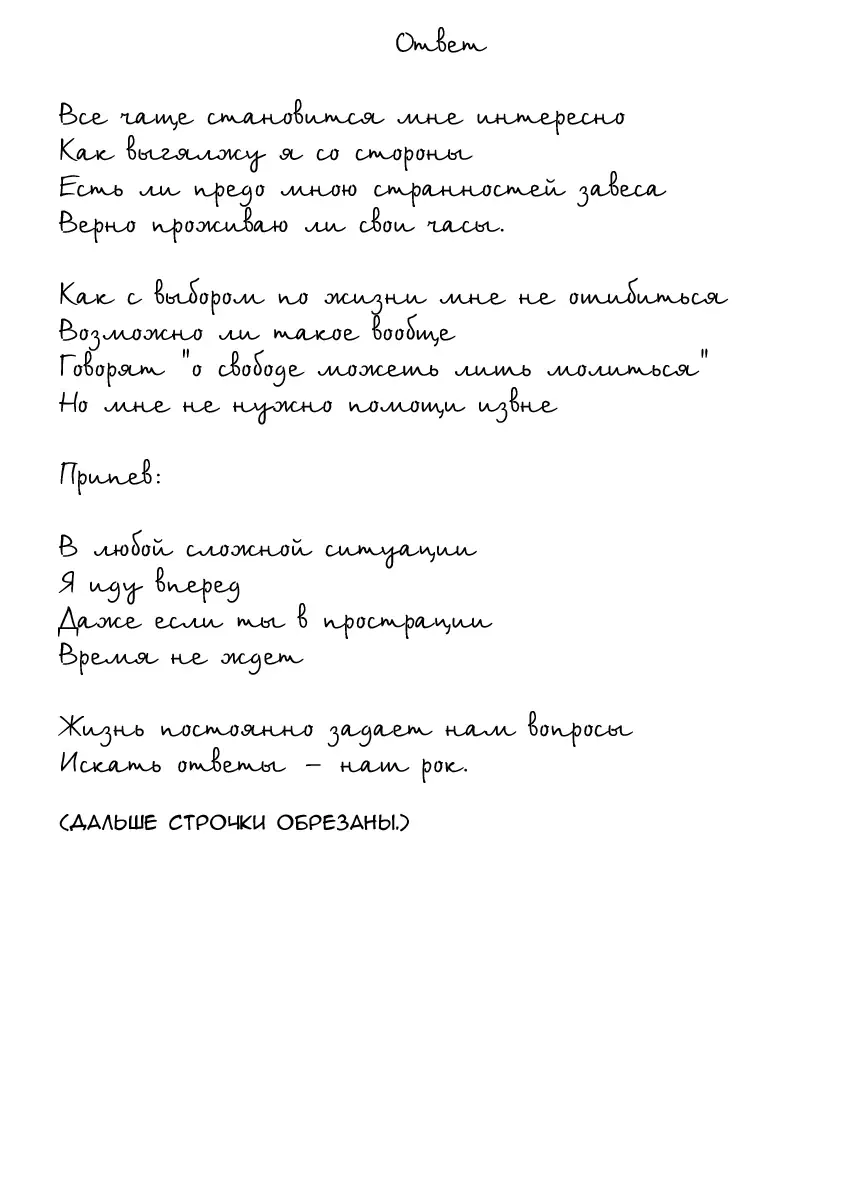 Ответ
Все чаще становится мне интересно
Как выгялжу я со стороны
Есть ли предо мною странностей завеса
Верно проживаю ли свои часы.
Как с выбором по жизни мне не ошибиться
Возможно ли такое вообще
Говорят "о свободе можеть лить молиться"
Но мне не нужно помощи извне
Припев:
В любой сложной ситуации
Я иду вперед
Даже если ты в прострации
Время не ждет
Жизнь постоянно задает нам вопросы
Искать ответы – наш рок.
(ДАЛЬШЕ СТРОЧКИ ОБРЕЗАНЫ.)